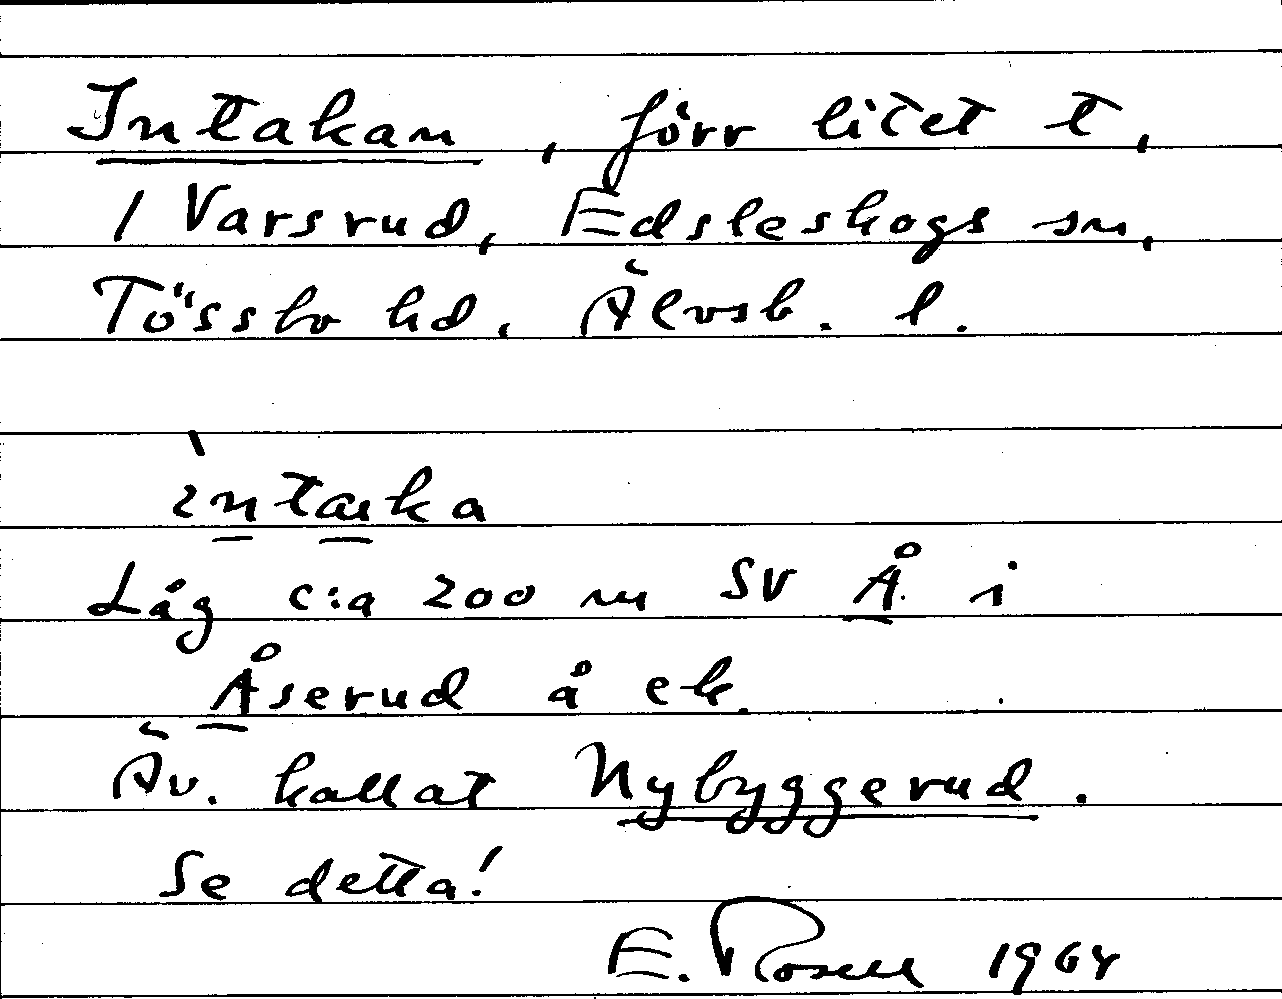 Intakan, förr litet t,
1 Varsrud, Edsleskogs sn,
Tössbo hd. Älvsb. l.
ìntaka
Låg c:a 200 m SV Å i
Åserud å ek.
Äv. kallat Nybyggerud.
Se detta!
E. Rosell 1964